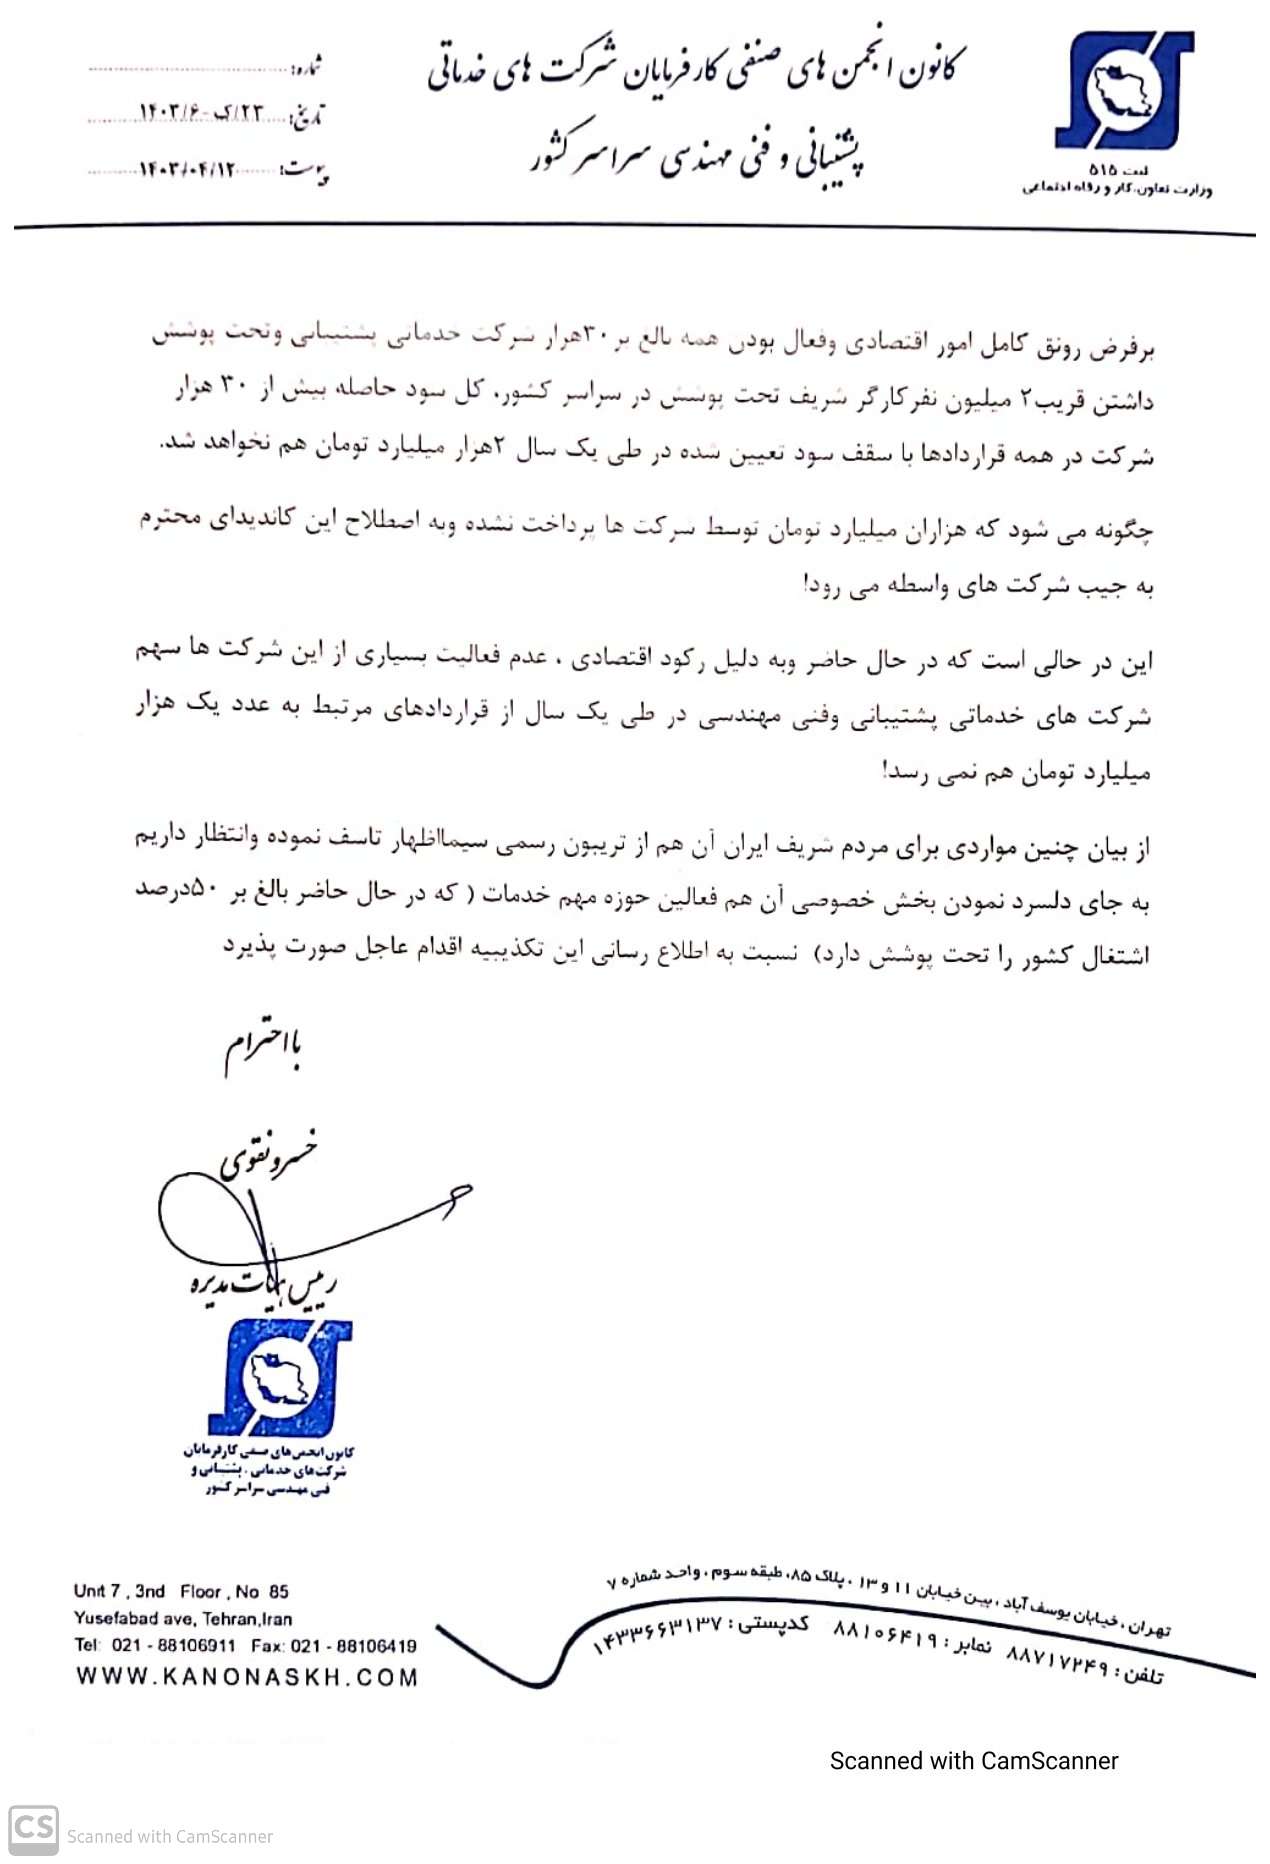 کانون انجمن های صنفی کارفرمایان شرکت های خدماتی
پشتیبانی و فنی مهندسی سراسر کشور
ثبت ۵۱۵
وزارت تعاون، کار و رفاه اجتماعی
شماره:
تاریخ: ۲۳/ک-۱۴۰۳/۶
پیوست: ۱۴۰۳/۰۴/۱۲
برفرض رونق کامل امور اقتصادی وفعال بودن همه بالغ بر۳۰هزار شرکت خدماتی پشتیبانی وتحت پوشش
داشتن قریب۲ میلیون نفرکارگر شریف تحت پوشش در سراسر کشور، کل سود حاصله بیش از ۳۰ هزار
شرکت در همه قراردادها با سقف سود تعیین شده در طی یک سال ۲هزار میلیارد تومان هم نخواهد شد.
چگونه می شود که هزاران میلیارد تومان توسط شرکت ها پرداخت نشده وبه اصطلاح این کاندیدای محترم
به جیب شرکت های واسطه می رود!
این در حالی است که در حال حاضر وبه دلیل رکود اقتصادی ، عدم فعالیت بسیاری از این شرکت ها سهم
شرکت های خدماتی پشتیبانی وفنی مهندسی در طی یک سال از قراردادهای مرتبط به عدد یک هزار
میلیارد تومان هم نمی رسد!
از بیان چنین مواردی برای مردم شریف ایران آن هم از تریبون رسمی سیمااظهار تاسف نموده وانتظار داریم
به جای دلسرد نمودن بخش خصوصی آن هم فعالین حوزه مهم خدمات ( که در حال حاضر بالغ بر ۵۰درصد
اشتغال کشور را تحت پوشش دارد) نسبت به اطلاع رسانی این تکذیبیه اقدام عاجل صورت پذیرد
با احترام
خسرو نقوی
رییس هیات مدیره
کانون انجمن‌های صنفی کارفرمایان
شرکت‌های خدماتی ، پشتیبانی و
فنی مهندسی سراسر کشور
تهران ، خیابان یوسف آباد ، بین خیابان ۱۱ و ۱۳ ، پلاک ۸۵، طبقه سوم ، واحد شماره ۷
تلفن : ۸۸۷۱۷۲۴۹ نمابر : ۸۸۱۰۶۴۱۹ کدپستی : ۱۴۳۳۶۶۳۱۳۷
Unit 7 , 3nd Floor , No 85
Yusefabad ave, Tehran,Iran
Tel: 021 - 88106911 Fax: 021 - 88106419
WWW.KANONASKH.COM
Scanned with CamScanner
CS Scanned with CamScanner